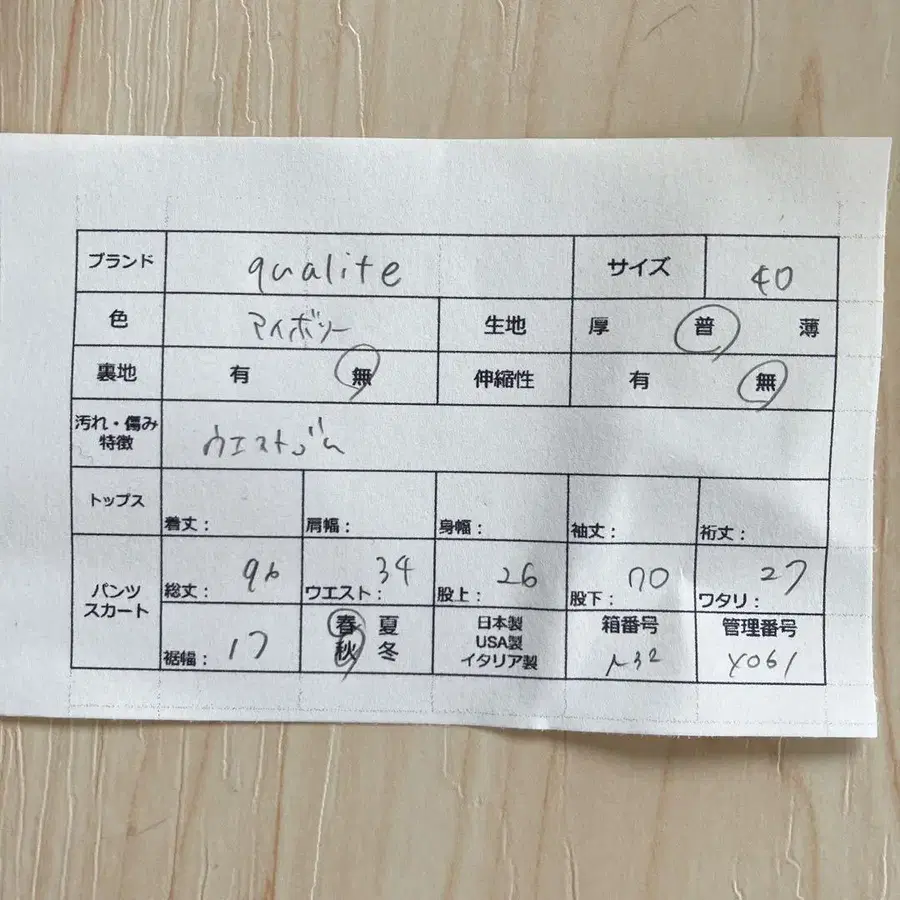 ブランド qualite サイズ 40
色 アイボリー 生地 厚 普 薄
裏地 有 無 伸縮性 有 無
汚れ・傷み
特徴 ウエストゴム
トップス 着丈: 肩幅: 身幅: 袖丈: 裄丈:
パンツ
スカート
総丈: 96 ウエスト: 34 股上: 26 股下: 70 ワタリ: 27
裾幅: 17
春 夏
秋 冬
日本製
USA製
イタリア製
箱番号
管理番号
Y061